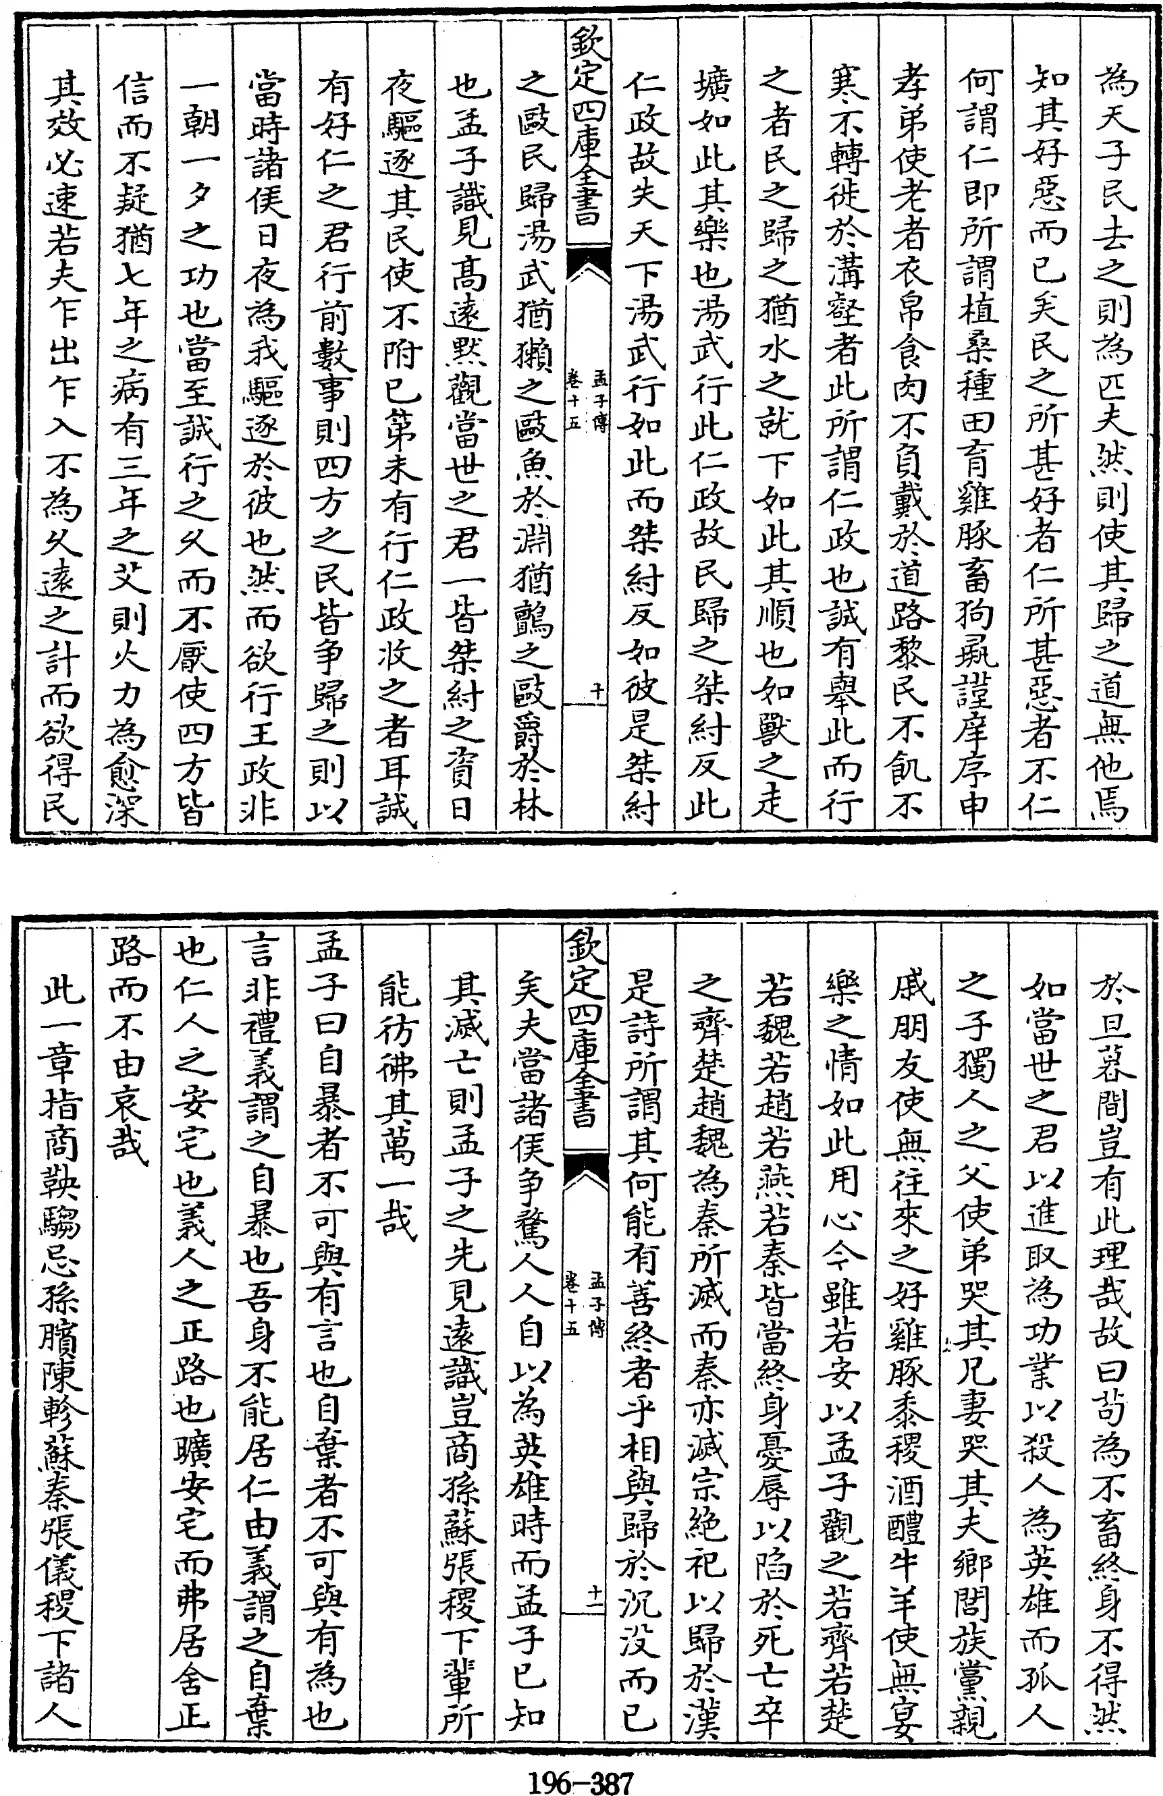 為天子民去之則為匹夫然則使其歸之道無他焉
知其好惡而已矣民之所甚好者仁所甚惡者不仁
何謂仁即所謂植桑種田育雞豚畜狗彘謹庠序申
孝弟使老者衣帛食肉不負戴於道路黎民不飢不
寒不轉徙於溝壑者此所謂仁政也誠有舉此而行
之者民之歸之猶水之就下如此其順也如獸之走
壙如此其樂也湯武行此仁政故民歸之桀紂反此
仁政故失天下湯武行如此而桀紂反如彼是桀紂
欽定四庫全書
孟子傳
卷十五
十
之敺民歸湯武猶獺之敺魚於淵猶鸇之敺爵於林
也孟子識見高遠默觀當世之君一皆桀紂之資日
夜驅逐其民使不附已第未有行仁政收之者耳誠
有好仁之君行前數事則四方之民皆争歸之則以
當時諸侯日夜為我驅逐於彼也然而欲行王政非
一朝一夕之功也當至誠行之久而不厭使四方皆
信而不疑猶七年之病有三年之艾則火力為愈深
其效必速若夫乍出乍入不為久遠之計而欲得民
於旦暮間豈有此理哉故曰茍為不畜終身不得然
如當世之君以進取為功業以殺人為英雄而孤人
之子獨人之父使弟哭其兄妻哭其夫鄉閭族黨親
戚朋友使無往來之好雞豚黍稷酒醴牛羊使無宴
樂之情如此用心今雖若安以孟子觀之若齊若楚
若魏若趙若燕若秦皆當終身憂辱以陷於死亡卒
之齊楚趙魏為秦所滅而秦亦滅宗絶祀以歸於漢
是詩所謂其何能有善終者乎相與歸於沉没而已
欽定四庫全書
孟子傳
卷十五
十一
矣夫當諸侯争騖人人自以為英雄時而孟子已知
其滅亡則孟子之先見遠識豈商孫蘇張稷下輩所
能彷彿其萬一哉
孟子曰自暴者不可與有言也自棄者不可與有為也
言非禮義謂之自暴也吾身不能居仁由義謂之自棄
也仁人之安宅也義人之正路也曠安宅而弗居舍正
路而不由哀哉
此一章指商鞅騶忌孫臏陳軫蘇秦張儀稷下諸人
196-387